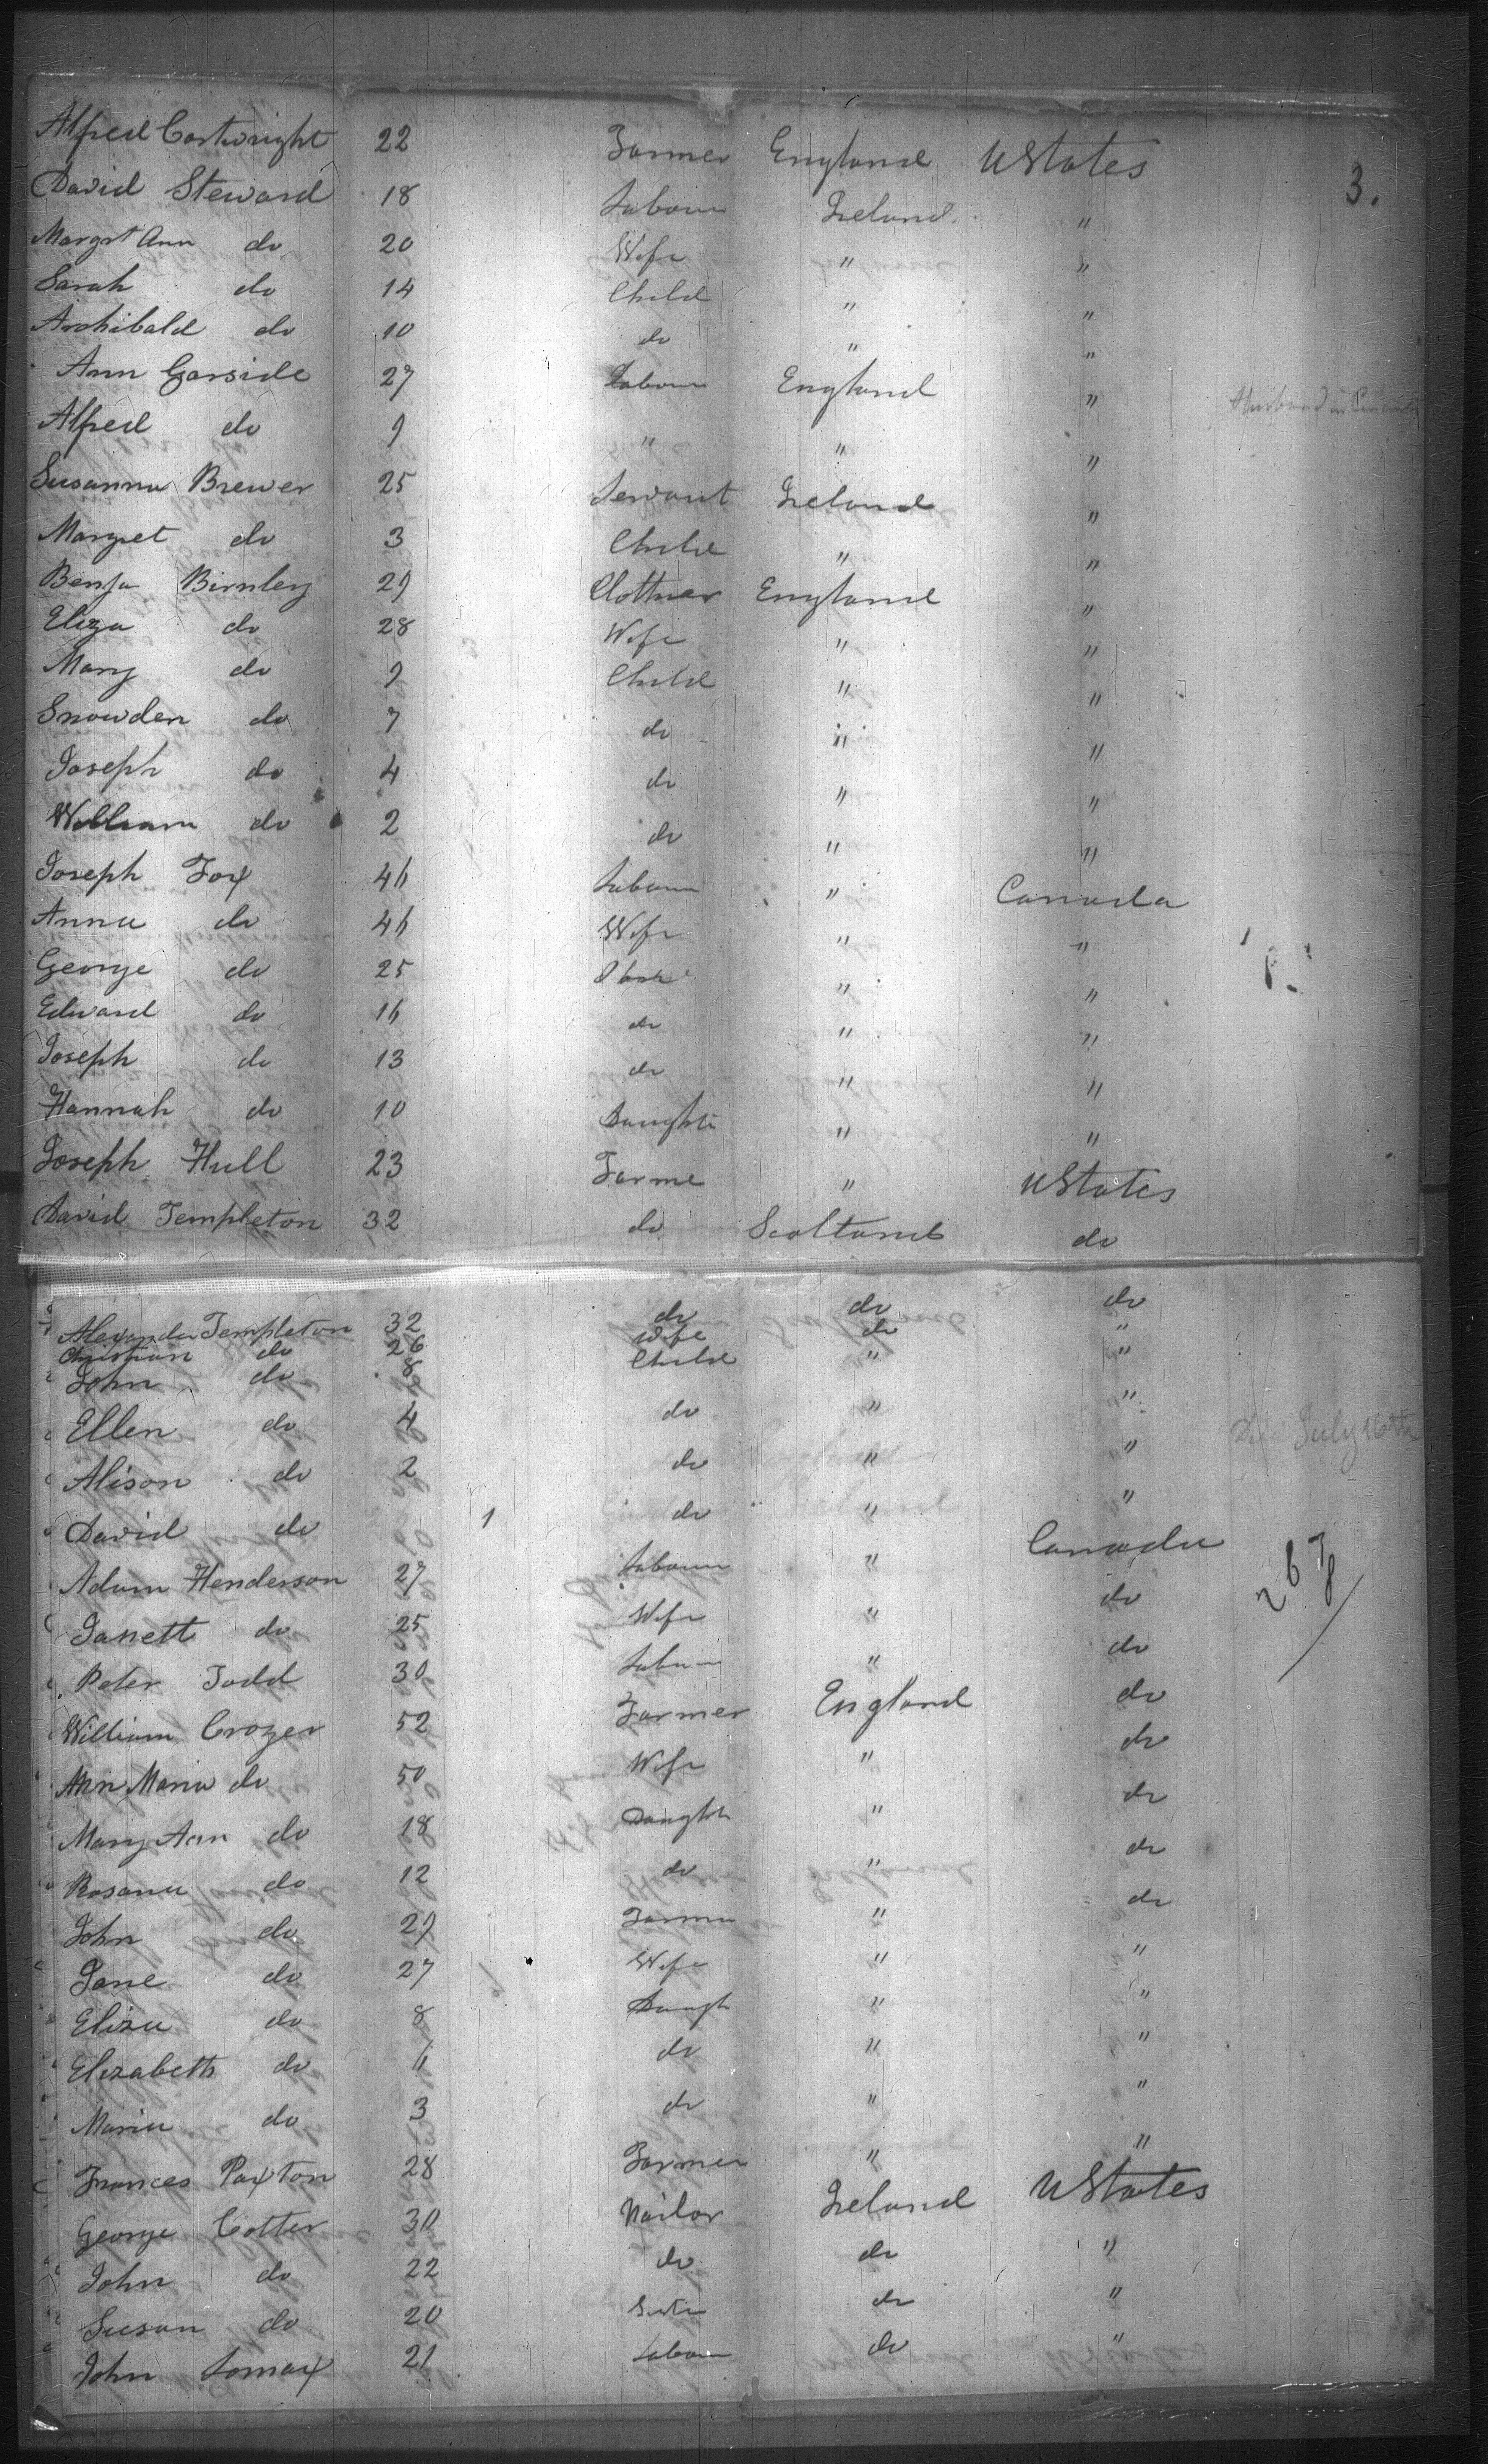 Alfred Cartwright 22 Farmer England UStates
3.
David Steward 18 Labour Ireland "
Margt Ann do 20 Wife " "
Sarah do 14 Child " "
Archibald do 10 do " "
Ann Garside 27 Labour England " Husband in
Alfred do 9 " " "
Susanna Brewer 25 Servant Ireland "
Margret do 3 Child " "
Benja Birnley 29 Clothier England "
Eliza do 28 Wife " "
Mary do 9 Child " "
Snowden do 7 do " "
Joseph do 4 do " "
William do 2 do " "
Joseph Fox 46 Labour " Canada
Anna do 46 Wife " "
George do 25 " "
Edward do 16 do " "
Joseph do 13 do " "
Hannah do 10 Daughte " "
Joseph Hull 23 Farme " UStates
David Templeton 32 do Scotland do
Alexander Templeton 32 do do do
Christian do 26 Wife do "
John do 8 Child " "
Ellen do 4 do " "
Alison do 2 do " " July 16th
David do 1 do " "
Adam Henderson 27 Labour " Canada
267
Janett do 25 Wife " do
Peter Todd 30 Labour " do
William Crozer 52 Farmer England do
Ann Maria do 50 Wife " do
Mary Ann do 18 Daughte " do
Rosana do 12 do " do
John do 29 Farmer " do
Jane do 27 Wife " "
Eliza do 8 Daugh " "
Elizabeth do 6 do " "
Maria do 3 do " "
Frances Paxton 28 Farmer " "
George Cotter 30 Nailor Ireland UStates
John do 22 do do "
Susan do 20 Siste do "
John Lomax 21 Labour do "